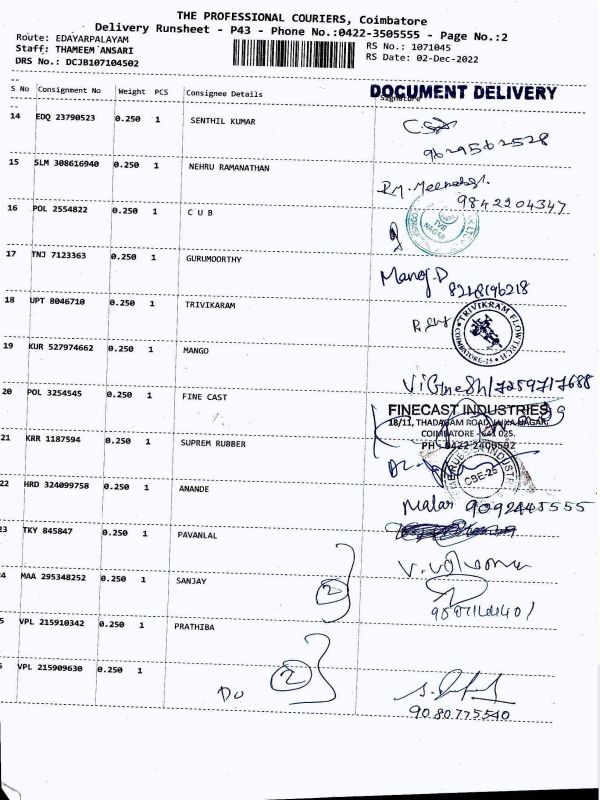 THE PROFESSIONAL COURIERS, Coimbatore
Delivery Runsheet - P43 - Phone No.:0422-3505555 - Page No.:2
Route: EDAYARPALAYAM
RS No.: 1071045
Staff: THAMEEM ANSARI
RS Date: 02-Dec-2022
DRS No.: DCJB107104502
DOCUMENT DELIVERY
S No Consignment No Weight PCS Consignee Details Signature
14 EDQ 23790523 0.250 1 SENTHIL KUMAR
9629562528
15 SLM 308616940 0.250 1 NEHRU RAMANATHAN
9842204347
16 POL 2554822 0.250 1 C U B
TVS NAGAR
17 TNJ 7123363 0.250 1 GURUMOORTHY
Manoj.D
8248196218
18 UPT 8046710 0.250 1 TRIVIKARAM
TRIVIKRAM FLOWTECH
COIMBATORE-25
19 KUR 527974662 0.250 1 MANGO
Vignesh/7259717688
20 POL 3254545 0.250 1 FINE CAST
FINECAST INDUSTRIES
18/11, THADAGAM ROAD,
COIMBATORE - 641 025.
PH : 0422 2400592
21 KRR 1187594 0.250 1 SUPREM RUBBER
CBE-25
22 HRD 324099758 0.250 1 ANANDE
Malar 9092445555
23 TKY 845847 0.250 1 PAVANLAL
24 MAA 295348252 0.250 1 SANJAY
2
5 VPL 215910342 0.250 1 PRATHIBA
2
VPL 215909630 0.250 1
Do
9080775540